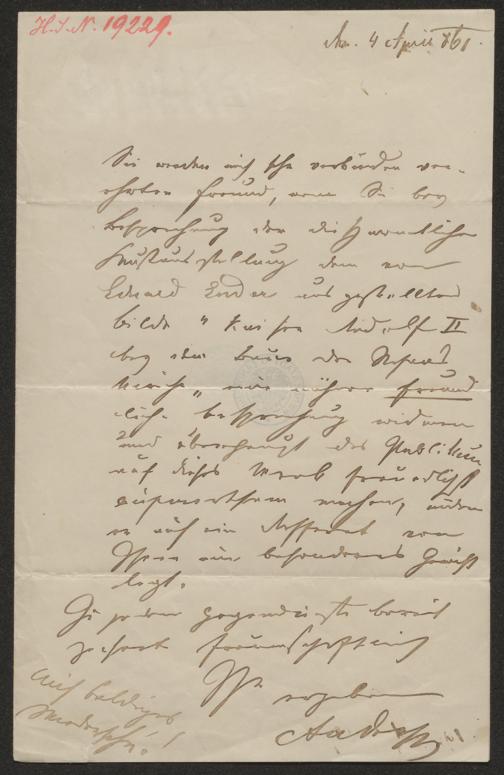 H.I.N. 19229.
4 April 861.
Sie werden mich sehr verbinden ver-
ehrter Freund, wenn Sie bey
Besprechung der dießmonatlichen
Kunstausstellung dem von
Eduard Ender ausgestellten
Bilde " Kaiser Rudolf II
bey dem
" eine nähere freund
liche Besprechung widmen
und überhaupt das Publikum
auf dieses Werk freundlichst
aufmerksam machen, indem
er auf ein Referat von
Ihnen ein besonderes Gewicht
legt.
Zu jedem Gegendienste bereit
zeichnet freundschaftlich
Ihr ergebener
Auf baldiges
Wiedersehn!